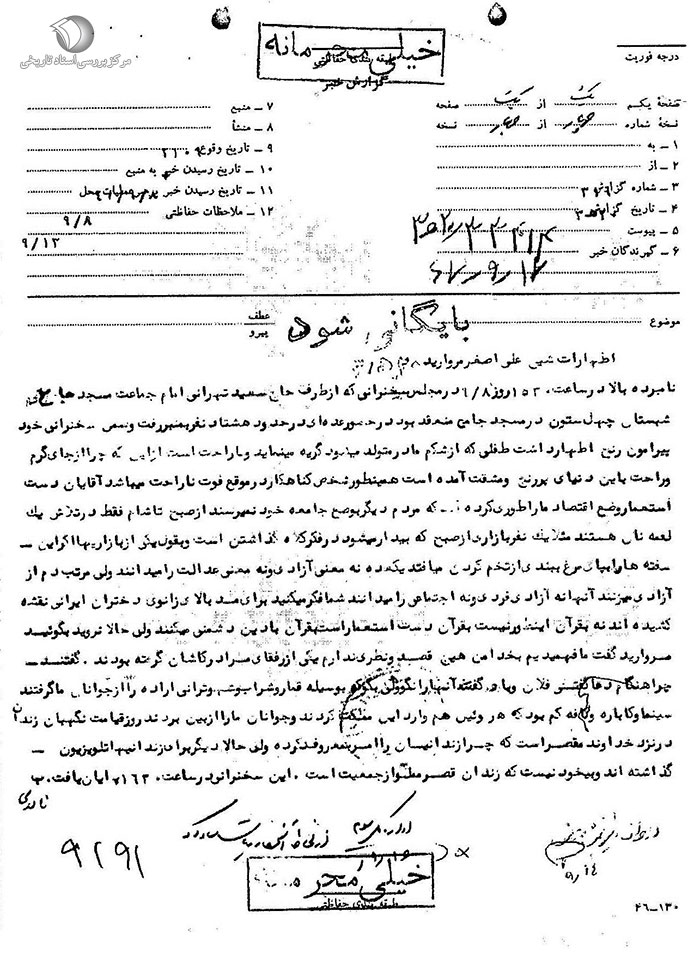 مرکز بررسی اسناد تاریخی
خیلی محرمانه
طبقه بندی حفاظتی
گزارش خبر
درجه فوریت
صفحهٔ یکم از صفحه
نسخهٔ شماره از نسخه
۱ ـ به
۲ ـ از
۳ ـ شماره گزارش
۴ ـ تاریخ گزارش
۵ ـ پیوست
۶ ـ گیرندگان خبر
۷ ـ منبع
۸ ـ منشأ
۹ ـ تاریخ وقوع
۱۰ ـ تاریخ رسیدن خبر به منبع
۱۱ ـ تاریخ رسیدن خبر به رهبر عملیات محل
۱۲ ـ ملاحظات حفاظتی
۹/۸
۹/۱۲
موضوع
بایگانی شود
عطف
پیرو
اظهارات شیخ علی اصغر مروارید
نامبرده بالا در ساعت روز ۶/۸ در مجلس سخنرانی که از طرف حاج سعید تهرانی امام جماعت مسجد جامع
شبستان چهل ستون در مسجد جامع منعقد بود در حضور عده ای در حدود هشتاد نفر بمنبر رفت و سخنرانی خود
پیرامون رنج اظهار داشت طفلی که از شکم مادر متولد میشود گریه مینماید و ناراحت است از این که چرا از جای گرم
و راحت باین دنیای پر رنج و مشقت آمده است همینطور شخص گناهکار در موقع فوت ناراحت میباشد آقایان دست
استعمار وضع اقتصاد ما را طوری کرده که مردم دیگر بوضع جامعه خود نمیرسند از صبح تا شام فقط در تلاش یک
لقمه نان هستند مثلا یک نفر بازاری از صبح که بیدار میشود در فکر کلاه گذاشتن است و بقول یکی از بازاریها اگر این
سفته ها را بپای مرغ ببندی از تخم کردن میافتد یکعده نه معنی آزادی و نه معنی عدالت را میدانند ولی مرتب دم از
آزادی میزنند آنها نه آزادی فردی و نه اجتماعی را میدانند شما فکر میکنید برای مد بالای زانوی دختران ایرانی نقشه
کشیده اند نه بقرآن اینطور نیست بقرآن دست استعمار است بقرآن با دین دشمنی میکنند ولی حالا نروید بگوئید
مروارید گفت ما فهمیدیم بخدا من هیچ قصد و نظری ندارم یکی از رفقای مرا در کاشان گرفته بودند . گفتند
چرا هنگام دعا گفتی فلان گفتند آنها را بگو ولی بگو که بوسیله قمار و شراب و شهوترانی اراده را از جوانان ما گرفتند
سینما و کاباره و کافه کم بود که هروئین هم وارد این مملکت کردند و جوانان ما را از بین بردند روز قیامت نگهبان زندان
در نزد خداوند مقصر است که چرا زندانیان را امر بمعروف نکرده ولی حالا دیگر برای زندانیها تلویزیون
گذاشته اند و بیخود نیست که زندان قصر مملو از جمعیت است . این سخنرانی در ساعت پایان یافت.
نادری
۹۲۹۲
خیلی محرمانه
طبقه بندی حفاظتی
۴۶ـ۱۳۰